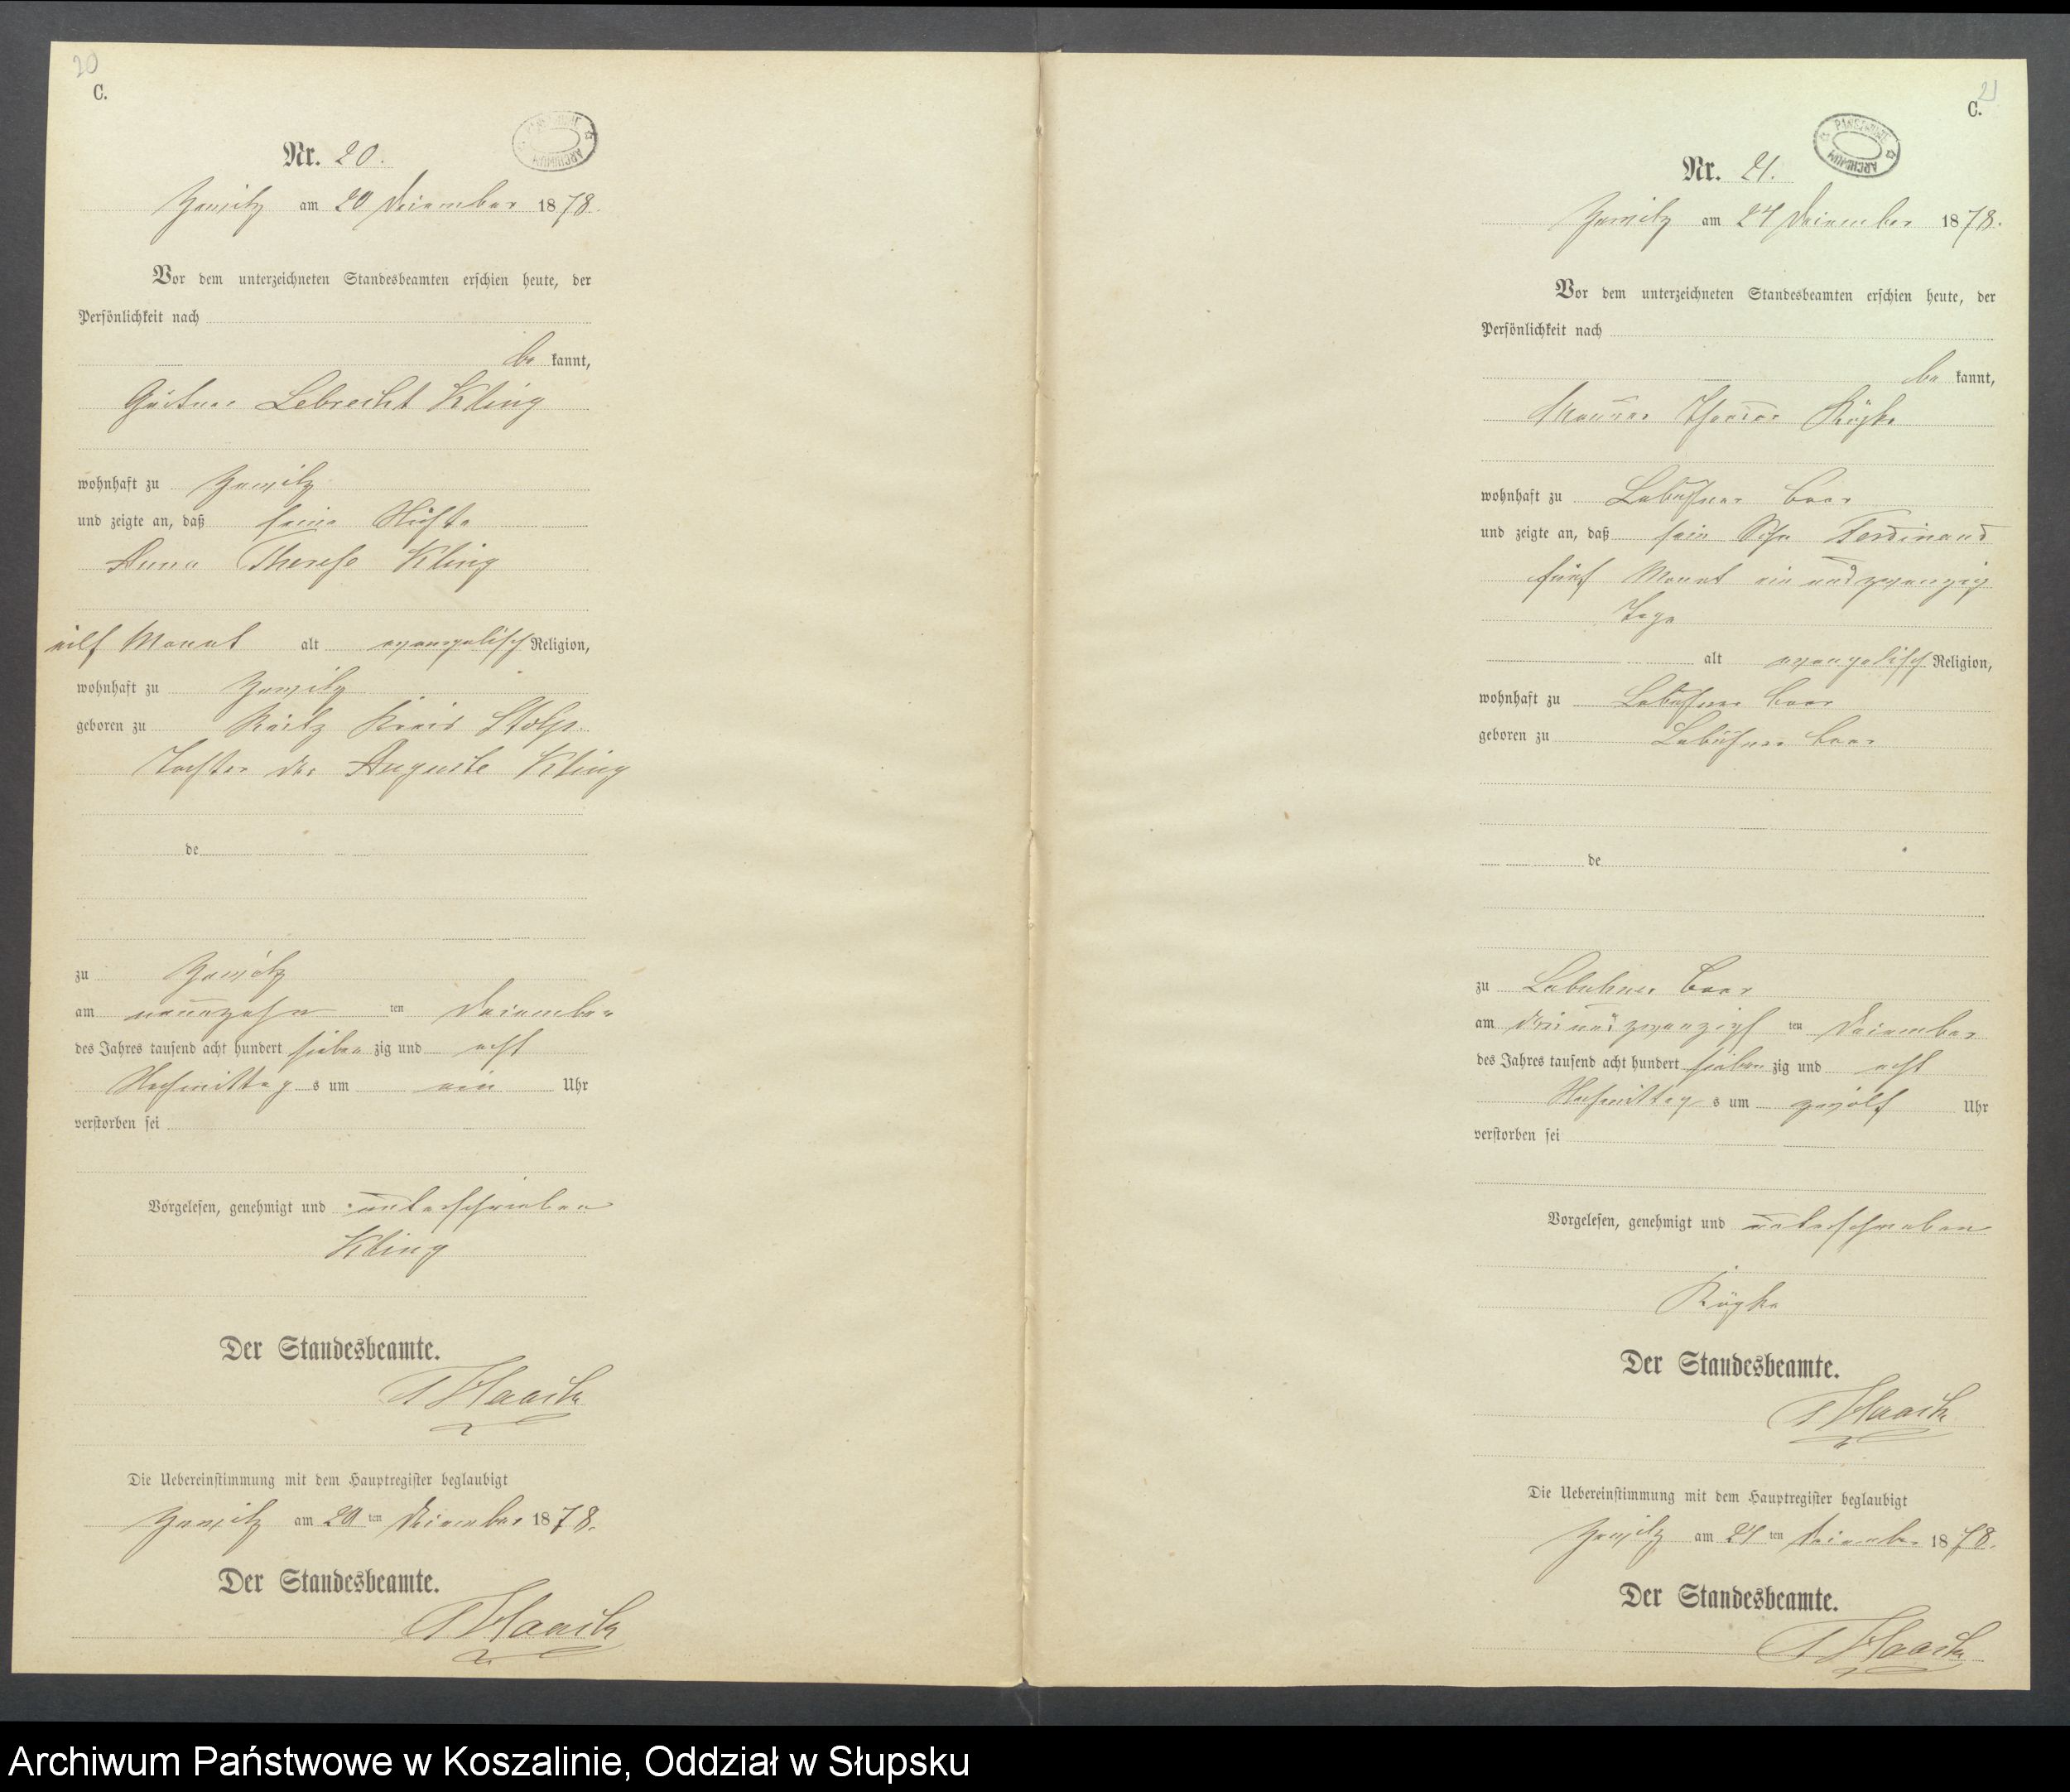 20
C.
Nr. 20.
Zewitz am 20 Dezember 1878.
Vor dem unterzeichneten Standesbeamten erschien heute, der
Persönlichkeit nach
be kannt,
Gärtner Lebrecht Kling
wohnhaft zu Zewitz
und zeigte an, daß seine Nichte
Anna Therese Kling
eilf Monat alt evangelisch Religion,
wohnhaft zu Zewitz
geboren zu Kreis Stolp.
Tochter der Auguste Kling
de
zu Zewitz
am neunzehn ten Dezember
des Jahres tausend acht hundert sieben zig und acht
Nachmittag s um ein Uhr
verstorben sei
Vorgelesen, genehmigt und unterschrieben
Kling
Der Standesbeamte.
Haack
Die Uebereinstimmung mit dem Hauptregister beglaubigt
Zewitz am 20 ten Dezember 1878.
Der Standesbeamte.
Haack
21
C.
PAŃSTWOWE ARCHIWUM
Nr. 21.
Zewitz am 24 Dezember 1878.
Vor dem unterzeichneten Standesbeamten erschien heute, der
Persönlichkeit nach
be kannt,
Maurer
wohnhaft zu Labuhner
und zeigte an, daß sein Sohn Ferdinand
fünf Monat ein und zwanzig
Tage
alt evangelisch Religion,
wohnhaft zu Labuhner
geboren zu Labuhner
de
zu Labuhner
am drei und zwanzigs ten Dezember
des Jahres tausend acht hundert sieben zig und acht
Nachmittag s um zwölf Uhr
verstorben sei
Vorgelesen, genehmigt und unterschrieben
Der Standesbeamte.
Haack
Die Uebereinstimmung mit dem Hauptregister beglaubigt
Zewitz am 24 ten Dezember 1878.
Der Standesbeamte.
Haack
Archiwum Państwowe w Koszalinie, Oddział w Słupsku